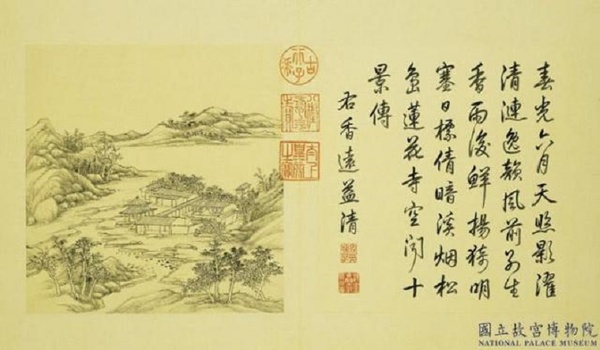 光六月天照影濯
清漣逸韻風前別生
香雨後鮮揚猗明
塞日標倩暗溪烟松
嵒蓮花寺空聞十
景傳
右香遠益清
國立故宮博物院
NATIONAL PALACE MUSEUM